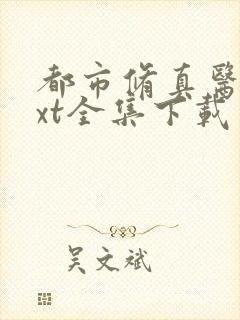 都市脩真醫
xt全集下載
吴文斌